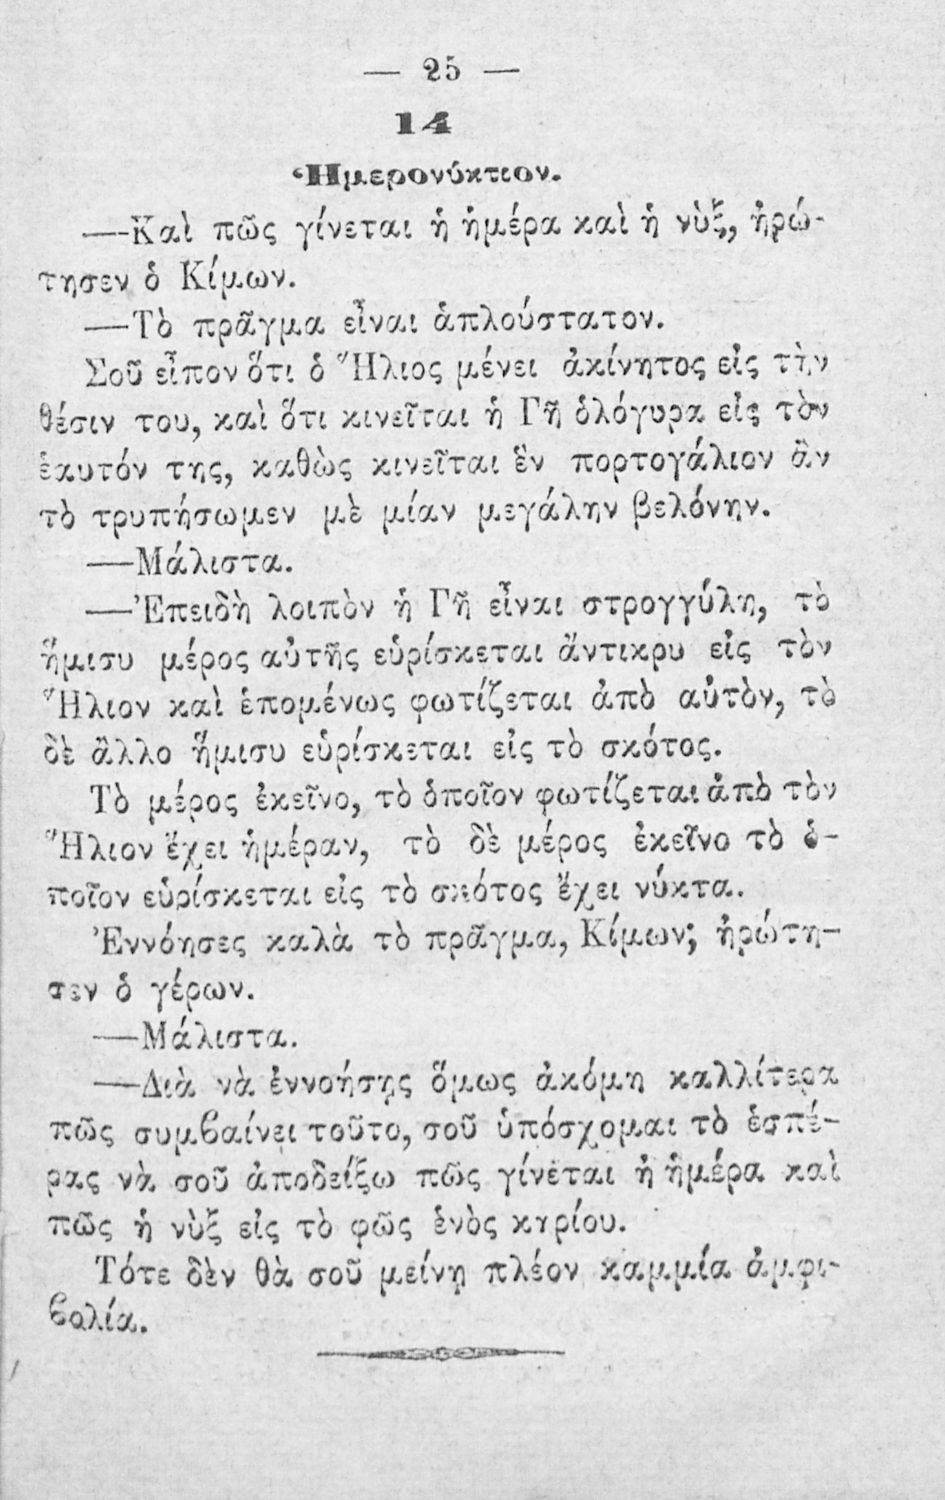 — 25 —
14
Ἡμερονύκτιον.
—Καὶ πῶς γίνεται ἡ ἡμέρα καὶ ἡ νὺξ, ἠρώ-
τησεν ὁ Κίμων.
—Τὸ πρᾶγμα εἶναι ἁπλούστατον.
Σοῦ εἶπον ὅτι ὁ Ἥλιος μένει ἀκίνητος εἰς τὴν
θέσιν του, καὶ ὅτι κινεῖται ἡ Γῆ ὁλόγυρα εἰς τὸν
ἑαυτόν της, καθὼς κινεῖται ἓν πορτογάλιον ἂν
τὸ τρυπήσωμεν μὲ μίαν μεγάλην βελόνην.
—Μάλιστα.
—Ἐπειδὴ λοιπὸν ἡ Γῆ εἶναι στρογγύλη, τὸ
ἥμισυ μέρος αὐτῆς εὑρίσκεται ἄντικρυ εἰς τὸν
Ἥλιον καὶ ἑπομένως φωτίζεται ἀπὸ αὐτὸν, τὸ
δὲ ἄλλο ἥμισυ εὑρίσκεται εἰς τὸ σκότος.
Τὸ μέρος ἐκεῖνο, τὸ ὁποῖον φωτίζεται ἀπὸ τὸν
Ἥλιον ἔχει ἡμέραν, τὸ δὲ μέρος ἐκεῖνο τὸ ὁ-
ποῖον εὑρίσκεται εἰς τὸ σκότος ἔχει νύκτα.
Ἐννόησες καλὰ τὸ πρᾶγμα, Κίμων; ἠρώτη-
σεν ὁ γέρων.
—Μάλιστα.
—Διὰ νὰ ἐννοήσῃς ὅμως ἀκόμη καλλίτερα
πῶς συμβαίνει τοῦτο, σοῦ ὑπόσχομαι τὸ ἑσπέ-
ρας νὰ σοῦ ἀποδείξω πῶς γίνεται ἡ ἡμέρα καὶ
πῶς ἡ νὺξ εἰς τὸ φῶς ἑνὸς κηρίου.
Τότε δὲν θὰ σοῦ μείνῃ πλέον καμμία ἀμφι-
βολία.